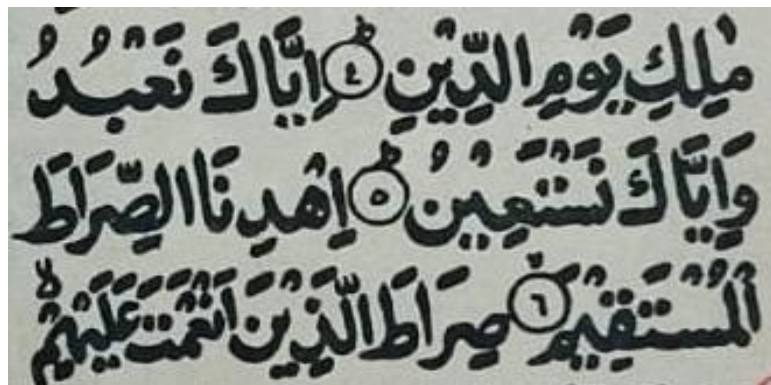 مٰلِكِ يَوْمِ الدِّيْنِ ۴ؕ اِيَّاكَ نَعْبُدُ
وَاِيَّاكَ نَسْتَعِيْنُ ۵ؕ اِهْدِنَا الصِّرَاطَ
الْمُسْتَقِيْمَ ۶ۙ صِرَاطَ الَّذِيْنَ اَنْعَمْتَ عَلَيْهِمْ ۙ